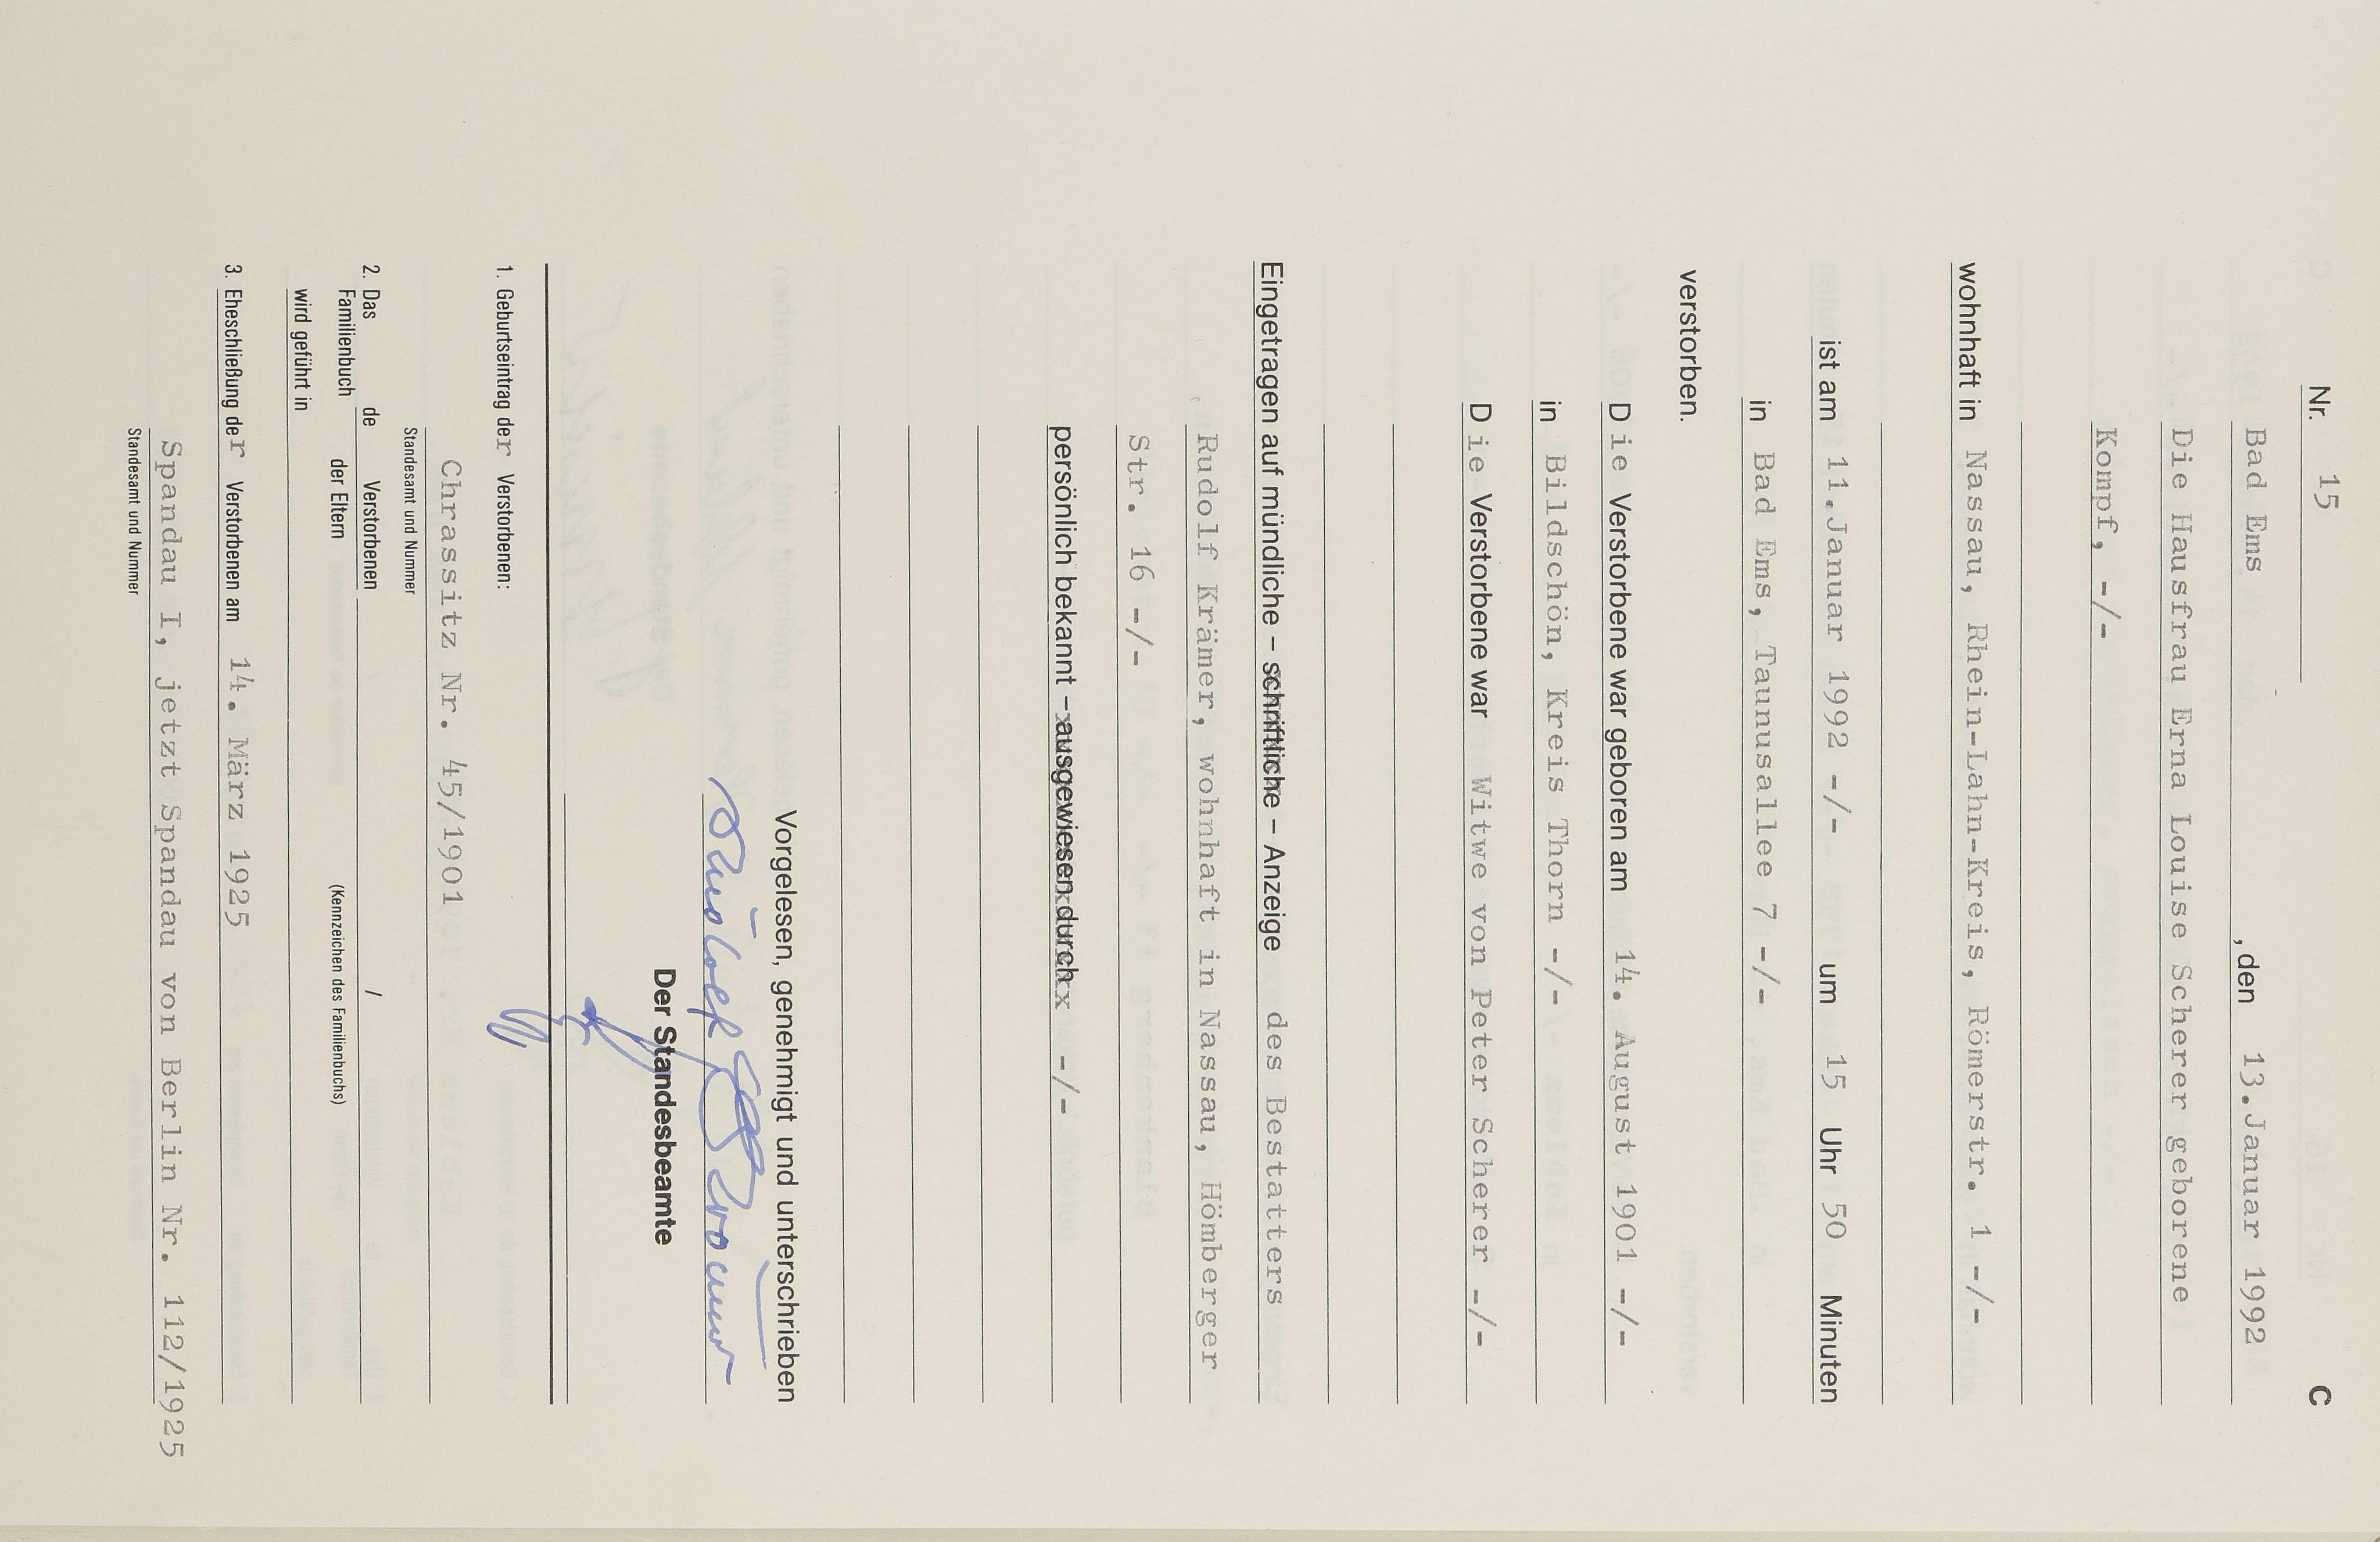 Nr. 15 C
Bad Ems , den 13.Januar 1992
Die Hausfrau Erna Louise Scherer geborene
Kompf, -/-
wohnhaft in Nassau, Rhein-Lahn-Kreis, Römerstr. 1 -/-
ist am 11.Januar 1992 -/- um 15 Uhr 50 Minuten
in Bad Ems, Taunusallee 7 -/-
verstorben.
Die Verstorbene war geboren am 14. August 1901 -/-
in Bildschön, Kreis Thorn -/-
Die Verstorbene war Witwe von Peter Scherer -/-
Eingetragen auf mündliche – schriftliche – Anzeige des Bestatters
Rudolf Krämer, wohnhaft in Nassau, Hömberger
Str. 16 -/-
persönlich bekannt – ausgewiesen durch -/-
Vorgelesen, genehmigt und unterschrieben
Der Standesbeamte
1. Geburtseintrag der Verstorbenen:
Chrassitz Nr. 45/1901
Standesamt und Nummer
2. Das de Verstorbenen /
Familienbuch der Eltern (Kennzeichen des Familienbuchs)
wird geführt in
3. Eheschließung der Verstorbenen am 14. März 1925
Spandau I, jetzt Spandau von Berlin Nr. 112/1925
Standesamt und Nummer